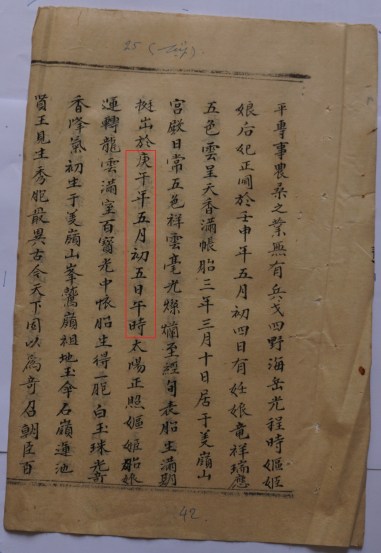 25 (一汐).
平專事農桑之業無有兵戈四野海岳光程時嫗姫
娘后妃正囯於壬申年五月初四日有妊娘竜祥瑞應
五色雲呈天香滿帳胎三年三月十日居于美嶺山
宮殿日常五色祥雲毫光燦爛至經旬表胎生滿期
挺出於庚午年五月初五日午時太陽正照嫗姫胎娘
運轉龍雲滿室百寳光中恠胎生得一胞白玉珠光新
香降氣初生于美嶺山峯鸞嶺祖地玉傘石嶺蓮池
賢王見生秀胞最異古今天下囯以為奇召朝臣百
42